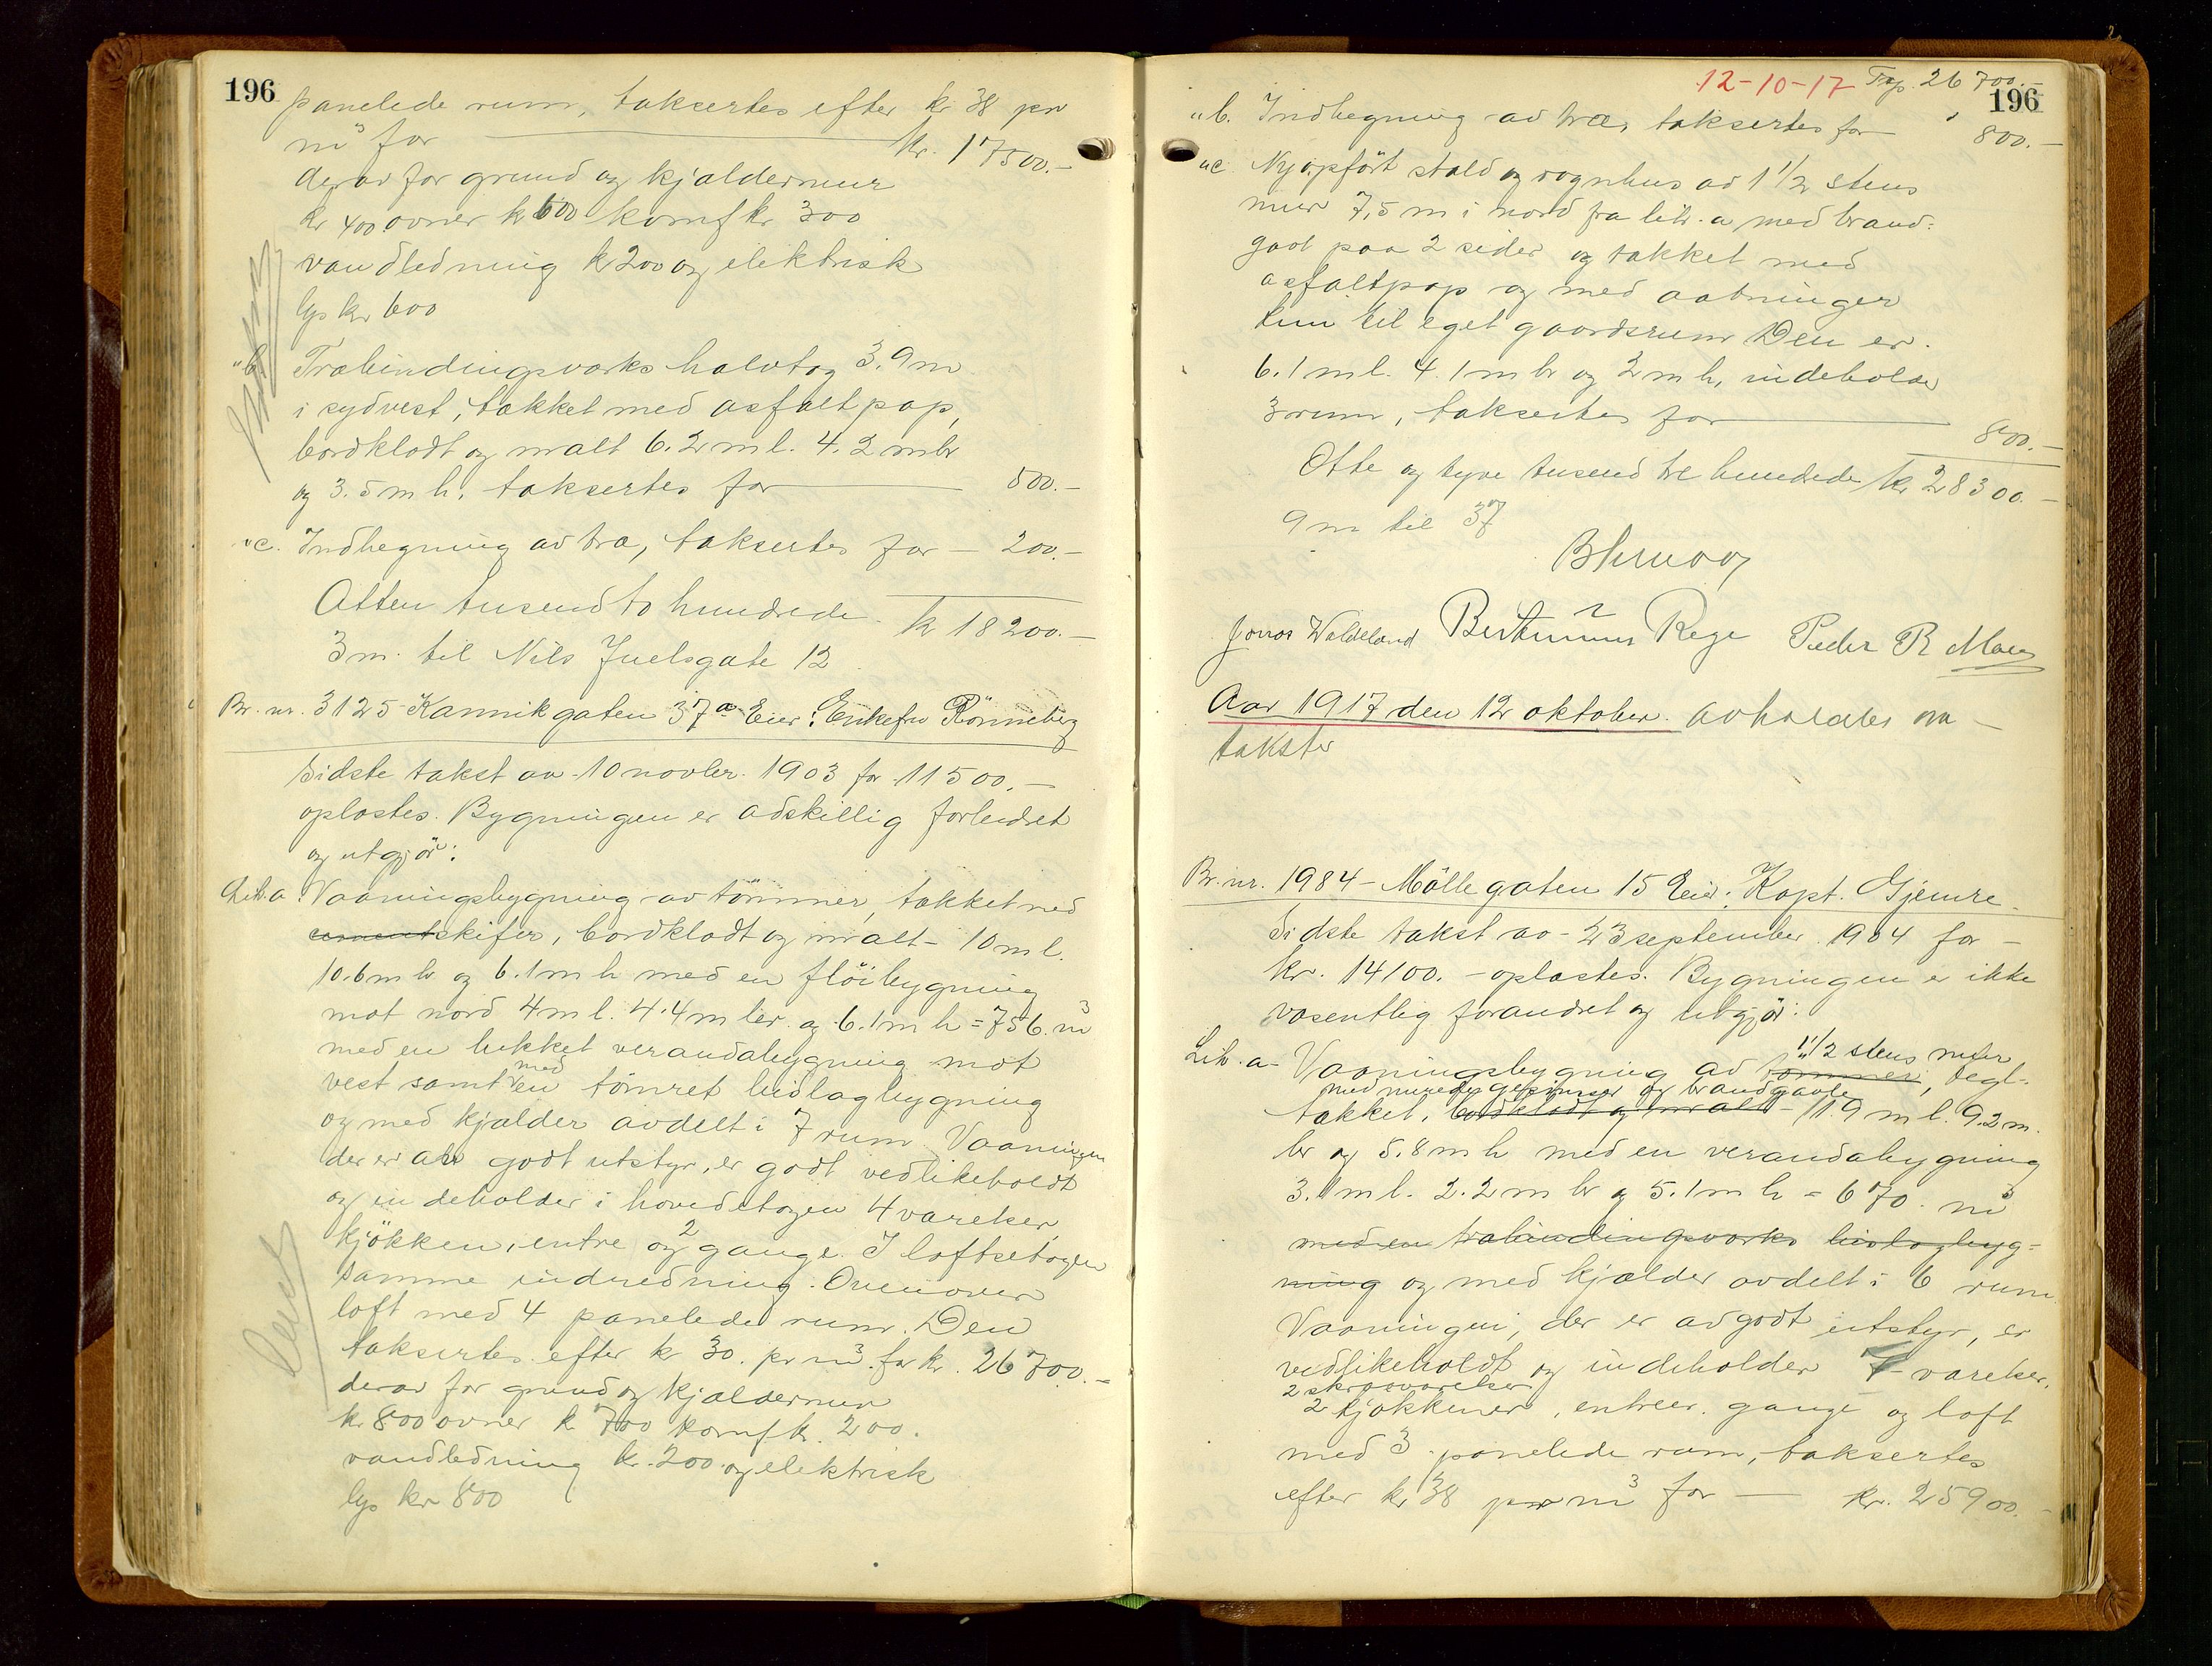 196
panelede rum, taksertes efter kr 38 pr
m³ for kr. 17500.-
derav for grund og kjældermur
kr 400 ovner kr 600 komf kr 300
vandledning kr 200 og elektrisk
lys kr 600
"b. Træbindingsverks halvtag 3.9 m
i sydvest, tækket med asfaltpap,
bordklædt og malt 6.2 m l. 4.2 m br
og 3.5 m h. taksertes for 500.-
"c. Indhegning av træ, taksertes for - 200.-
Atten tusend to hundrede kr 18200.-
3 m. til Nils Juelsgate 12
Br. nr. 3125 Kannikgaten 37a Eier: Enkefru Rönneberg
Sidste takst av 10 novbr. 1903 for 11500.-
oplæstes. Bygningen er adskillig forbedret
og utgjör:
Litr. a. Vaaningsbygning av tömmer, tækket med
cementskifer, bordklædt og malt - 10 m l.
10.6 m br og 6.1 m h med en flöibygning
mot nord 4 m l. 4.4 m br. og 6.1 m h = 756. m³
med en lukket verandabygning mot
vest samt med en tömret bislagbygning
og med kjælder avdelt i 7 rum. Vaaningen
der er av godt utstyr, er godt vedlikeholdt
og indeholder i hovedetagen 4 værelser,
kjökken, entre og 2 gange. I loftsetagen
samme indredning. Ovenover
loft med 4 panelede rum. Den
taksertes efter kr 30. pr m³. for kr. 26700.-
derav for grund og kjældermur
kr 800 ovner kr 700 komf kr. 200.
vandledning kr. 200 og elektrisk
lys kr 800
12-10-17 Trp. 26700.-
196
"b. Indhegning av træ, taksertes for 800.-
"c. Nyopfört stald og vognhus av 1 1/2 stens
mur 7,5 m i nord fra litr. a med brand-
gavl paa 2 sider og tækket med
asfaltpap og med aabninger
kun til eget gaardsrum Den er.
6.1 m l. 4.1 m br og 2 m h, indeholder
3 rum, taksertes for 800.-
Otte og tyve tusend tre hundrede kr 28300.-
9 m til 37
Jonas Waldeland Bertinius Rege Peder R Moen
Aar 1917 den 12 oktober. avholdtes om-
takster
Br. nr. 1984 - Mölle gaten 15 Eier: Kapt. Gjemre.
Sidste takst av - 23 september 1904 for -
kr. 14100. - oplæstes. Bygningen er ikke
væsentlig forandret og utgjör:
Litr. a - Vaaningsbygning av tömmer, 1 1/2 stens mur, tegl-
med murede gesimser og brandgavle
tækket, bordklædt og malt - 11.9 m l. 9.2 m.
br og 5.8 m h med en verandabygning
3.1 m l. 2.2 m br og 5.1 m h = 670. m³
med en træbindingsverks bislagbyg-
ning og med kjælder avdelt i 6 rum
Vaaningen, der er av godt utstyr, er
vedlikeholdt og indeholder 7 værelser,
2 skraaværelser
2 kjøkkener, entreer. gange og loft
med 3 panelede rum, taksertes
efter kr 38 pr m³ for — kr. 25900.-